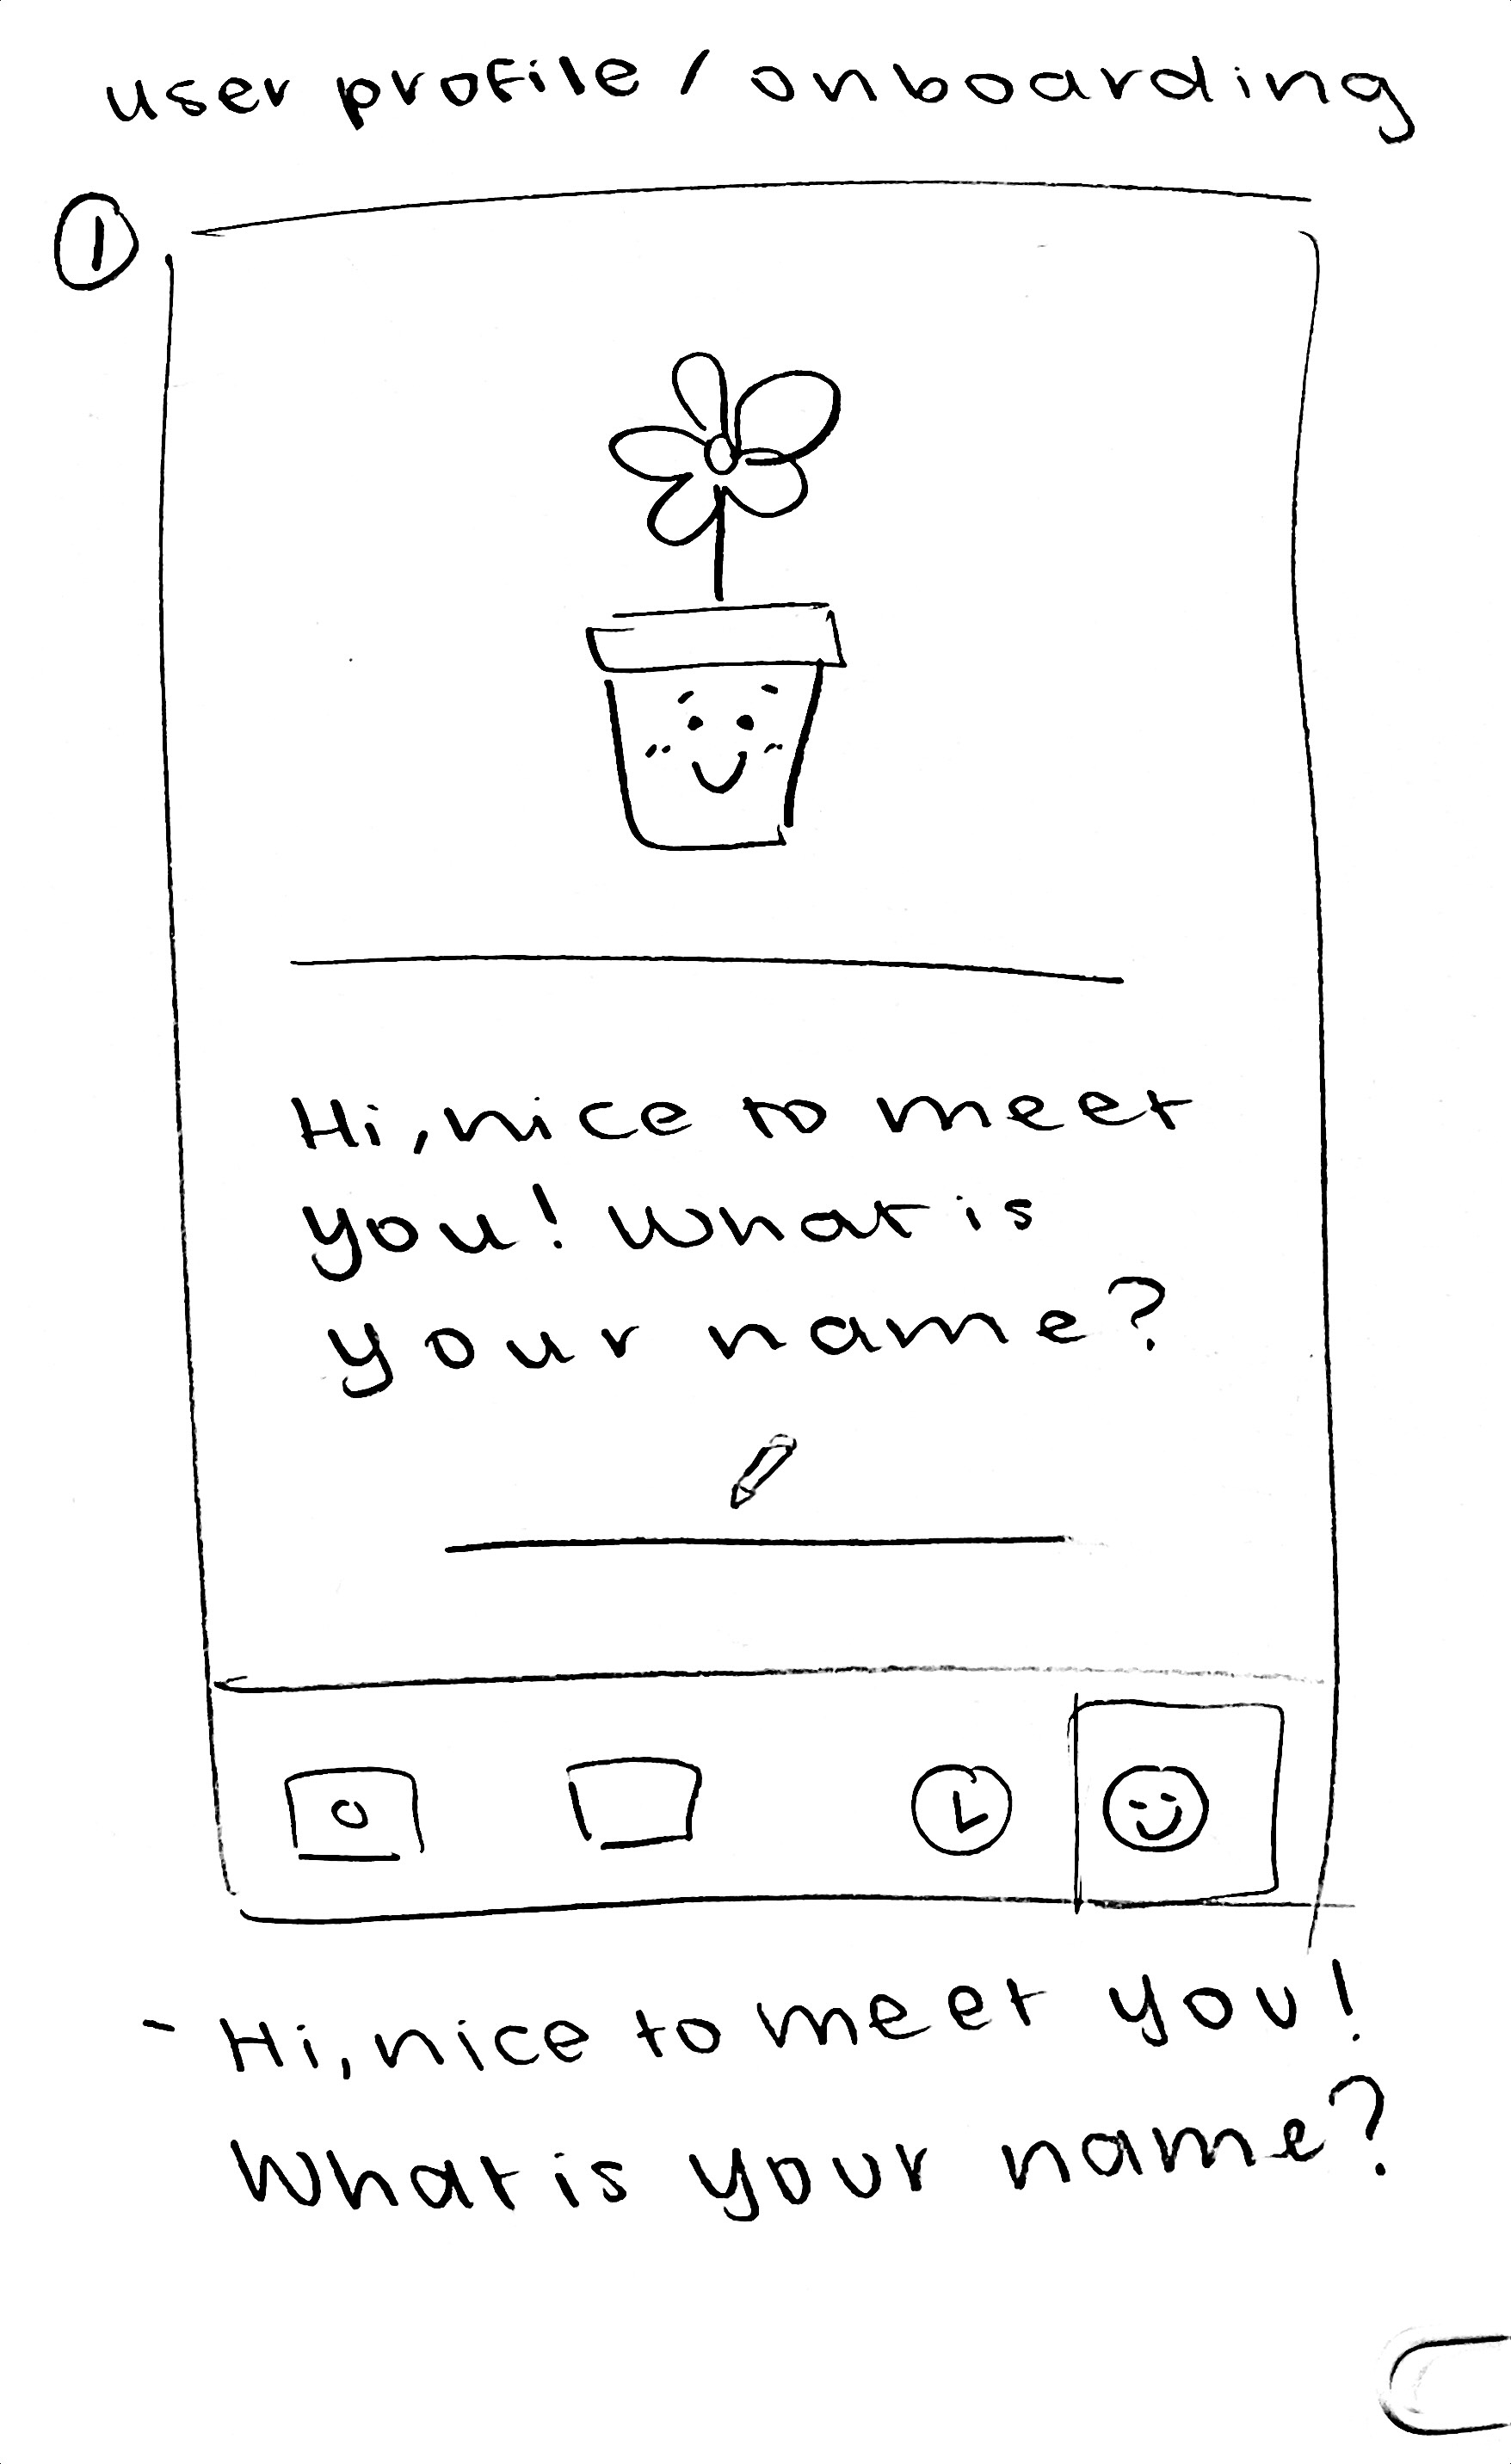 user profile / onboarding
1
Hi, nice to meet
you! What is
your name?
- Hi, nice to meet you!
What is your name?